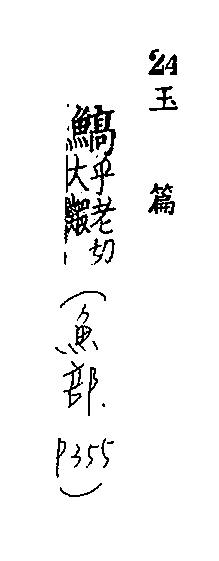 24玉篇
鰝乎老切
大鰕
（魚部. P355）